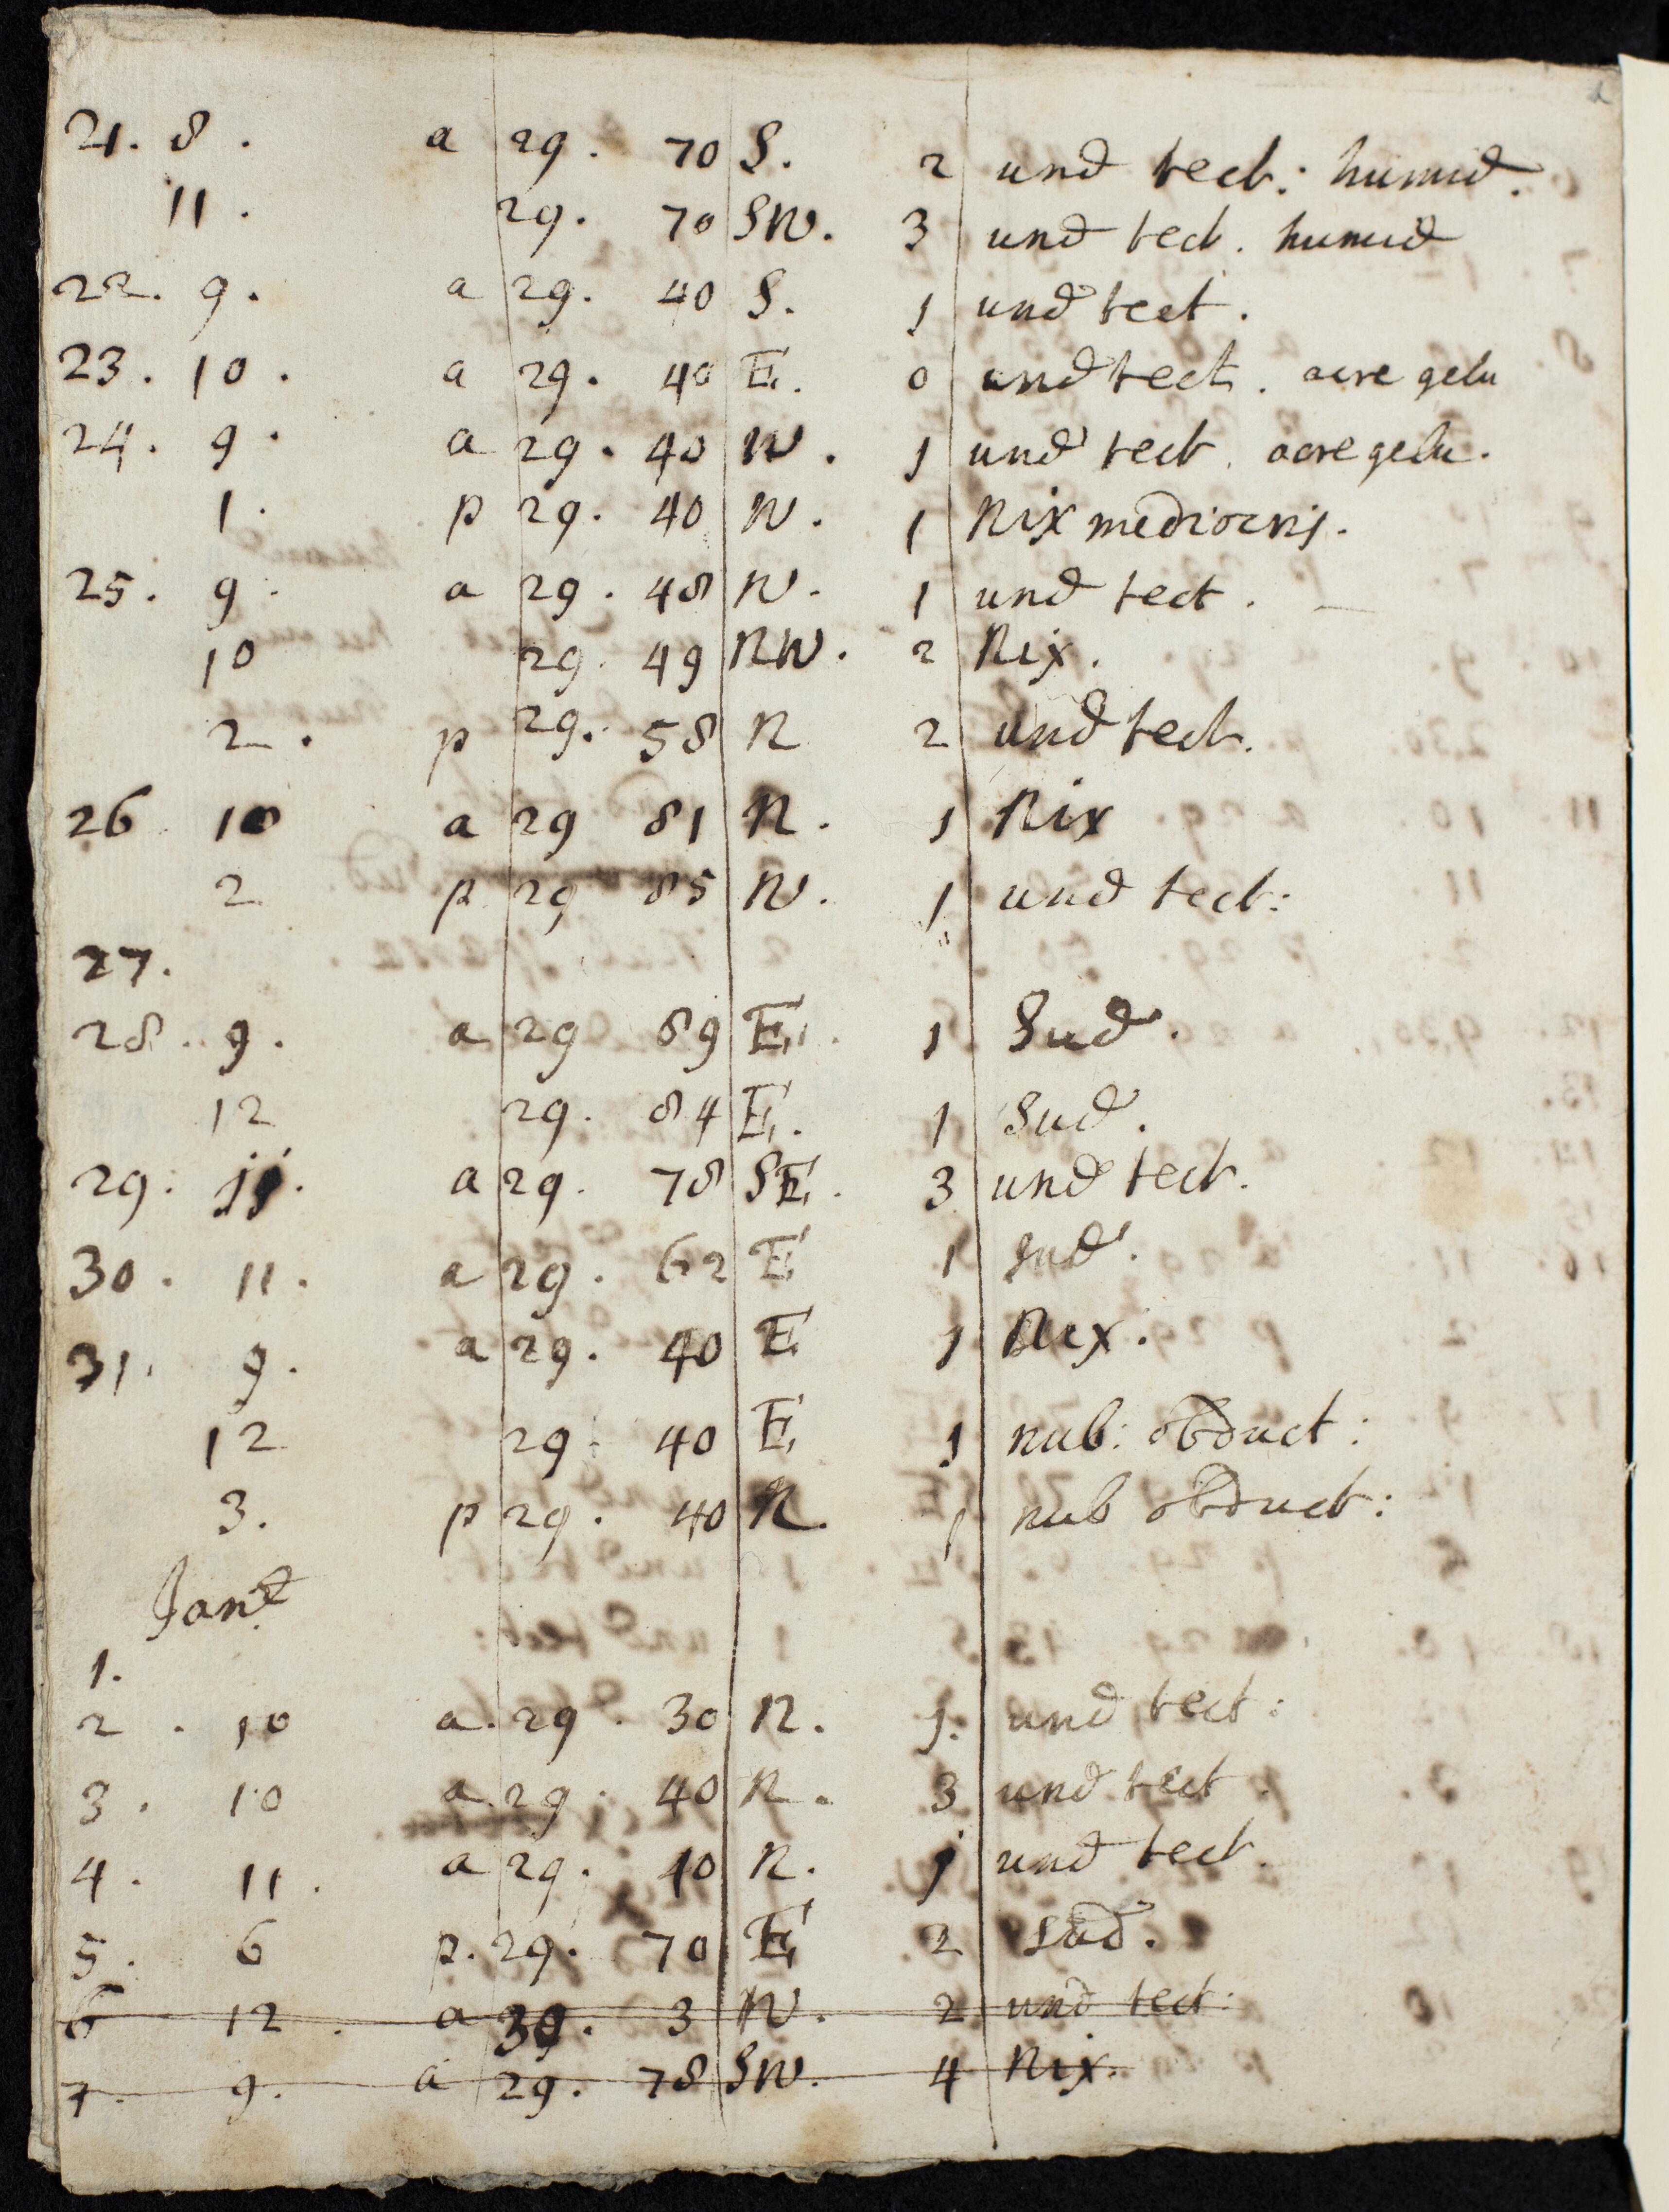 21. 8. a 29. 70 S. 2 und tect: humid.
11. 29. 70 SW. 3 und tect. humid
22. 9. a 29. 40 S. 1 und tect.
23. 10. a 29. 40 E. 0 und tect. acre gelu
24. 9. a 29. 40 W. 1 und tect. acre gelu.
1. p 29. 40 W. 1 Nix mediocris.
25. 9. a 29. 48 W. 1 und tect.
10 29. 49 NW. 2 Nix.
2. p 29. 58 N 2 und tect.
26 10 a 29 81 N. 1 Nix
2 p 29 85 W. 1 und tect:
27.
28. 9. a 29 89 E. 1 Sud.
12 29. 84 E. 1 Sud.
29. 11. a 29. 78 SE. 3 und tect.
30. 11. a 29. 62 E 1 sud.
31. 9. a 29. 40 E 1 Nix.
12 29. 40 E 1 nub: obduct:
3. p 29. 40 N. 1 nub obduct:
1.
2. 10 a. 29. 30 N. 1. und tect:
3. 10 a. 29. 40 N. 3 und tect.
4. 11. a 29. 40 N. 1 und tect.
5. 6 p. 29. 70 E 2 sud.
6 12. a 30. 3 W. 2 und tect:
7. 9. a 29. 78 SW. 4 Nix.